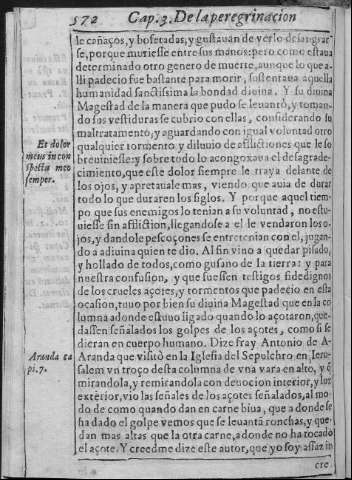 572 Cap. 3. De la peregrinacion
le cañaços, y bofetadas, y gustauan de verlo desangrar
se, porque muriesse entre sus manos: pero como estaua
determinado otro genero de muerte, aunque lo que a-
lli padecio fue bastante para morir, sustentaua aquella
humanidad sanctissima la bondad diuina. Y su diuina
Magestad de la manera que pudo se leuantò, y toman-
do sus vestiduras se cubrio con ellas, considerando su
maltratamento, y aguardando con igual voluntad otro
qualquier tormento y diluuio de aflictiones que le so
breuiniesse: y sobre todo lo acongoxaua el desagrade-
cimiento, que este dolor siempre le traya delante de
los ojos, y apretauale mas, viendo que auia de durar
todo lo que duraren los siglos. Y porque aquel tiem-
po que sus enemigos lo tenian a su voluntad, no estu-
uiesse sin afliction, llegandose a el le vendaron los o-
jos, y dandole pescoçones se entretenian con el, jugan-
do a adiuina quien te dio. Al fin vino a quedar pisado,
y hollado de todos, como gusano de la tierra: y para
nuestra confusion, y que fuessen testigos fidedignos
de los crueles açotes, y tormentos que padecio en esta
ocasion, tuuo por bien su diuina Magestad que en la co
lumna adonde estuuo ligado quando lo açotaron, que-
dassen señalados los golpes de los açotes, como si se
dieran en cuerpo humano. Dize fray Antonio de A-
Aranda que visitò en la Iglesia del Sepulchro en Jeru-
salem vn troço desta columna de vna vara en alto, y q̃
mirandola, y remirandola con deuocion interior, y luz
exterior, vio las señales de los açotes señalados, al mo-
do de como quando dan en carne biua, que a donde se
ha dado el golpe vemos que se leuantã ronchas, y que-
dan mas altas que la otra carne, a donde no ha tocado
el açote. Y creedme dize este autor, que yo soy assaz in
cre
Et dolor
meus in con
spectu meo
semper.
Aranda ca
pi. 7.